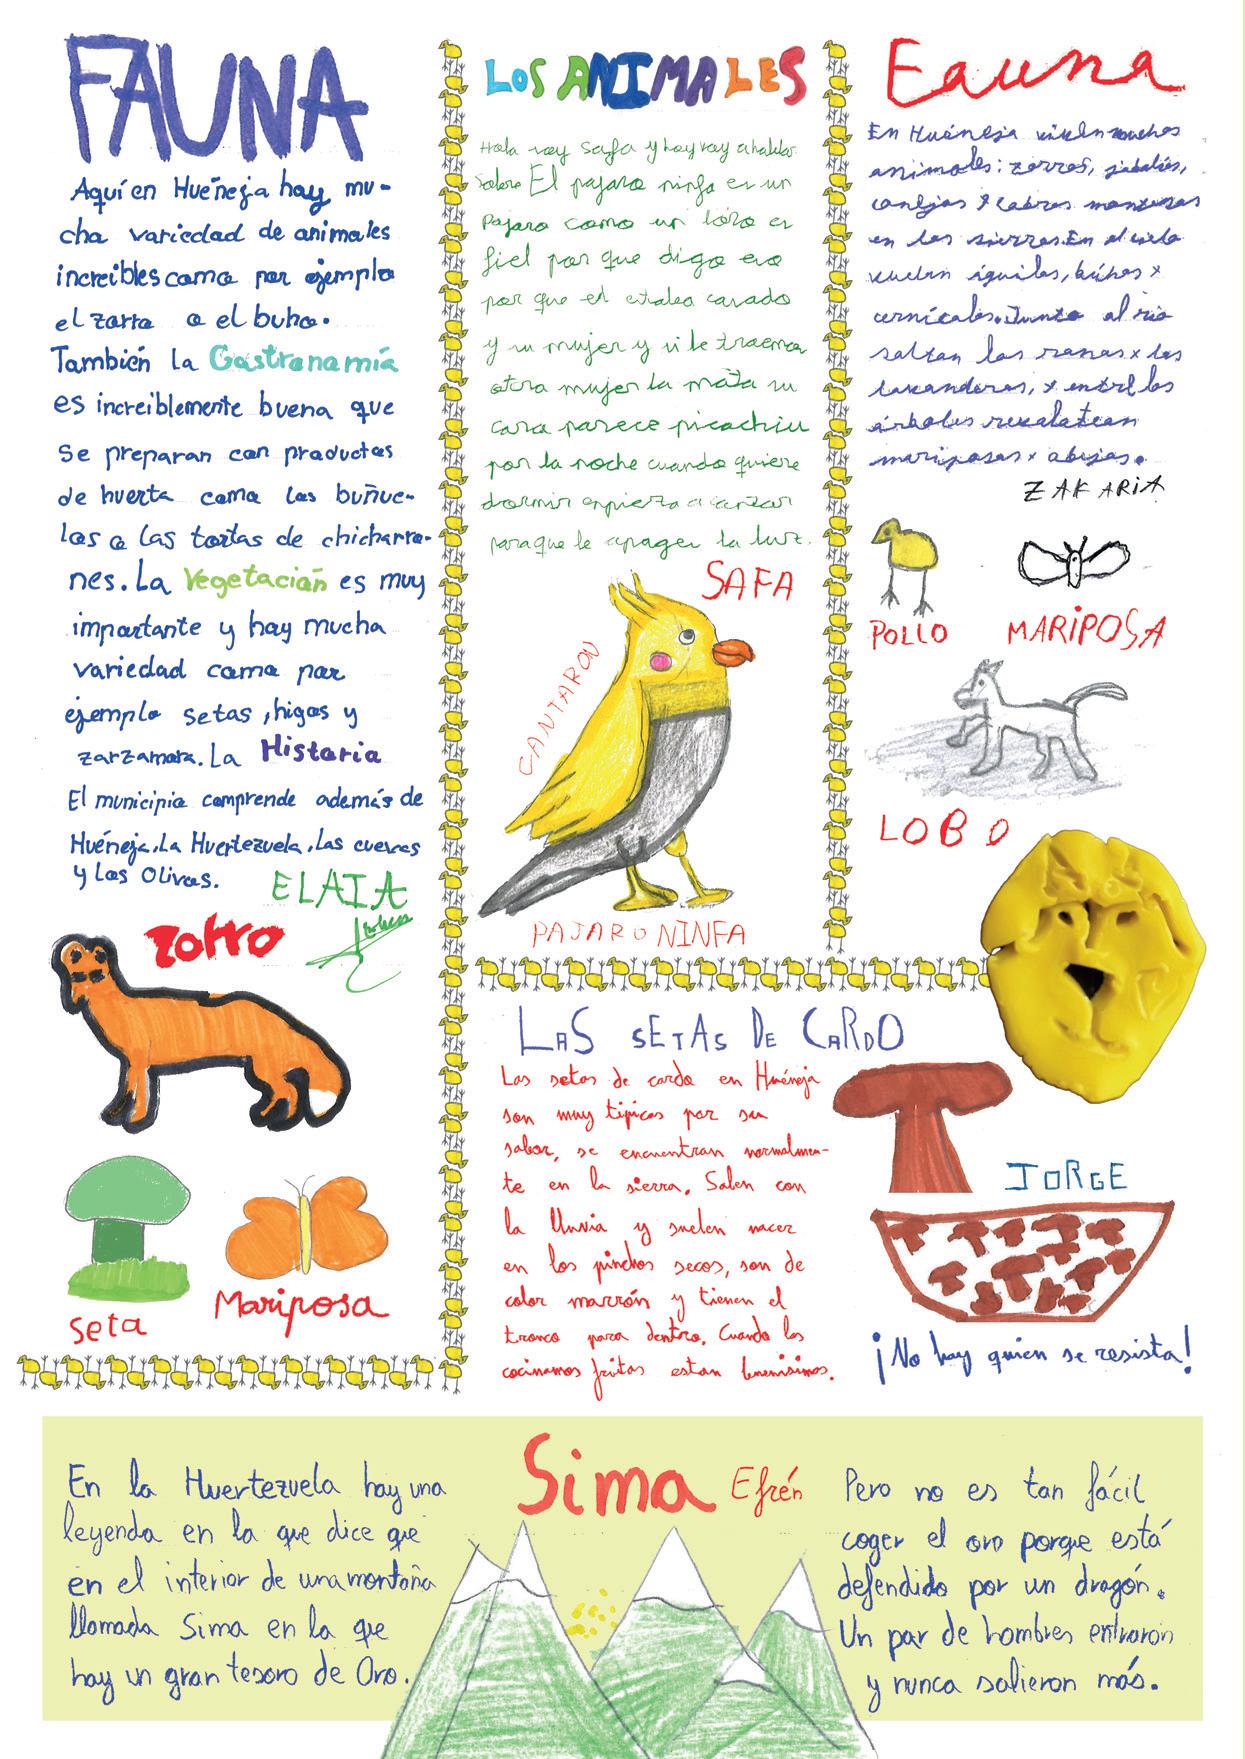 FAUNA
Aquí en Huéneja hay mu-
cha variedad de animales
increibles como por ejemplo
el zorro o el buho.
También la Gastronomía
es increiblemente buena que
se preparan con productos
de huerta como los buñue-
los o las tortas de chicharro-
nes. La Vegetación es muy
importante y hay mucha
variedad como por
ejemplo setas, higos y
zarzamora. La Historia
El municipio comprende además de
Huéneja, La Huertezuela, las cuevas
y Los Olivos.
ELAIA
Zorro
Seta
Mariposa
LOS ANIMALES
Hola soy Safa y hoy voy a hablar
sobre El pajaro ninfa es un
pajaro como un loro es
fiel por que digo eso
por que el estaba casado
y su mujer y si le traemos
otra mujer la mata su
cara parece picachiu
por la noche cuando quiere
dormir enpieza a canzar
para que le apagen la luz.
SAFA
CANTARON
PAJARO NINFA
Fauna
En Huéneja viven muchos
animales: zorros, jabalíes,
conejos y cabras monteses
en las sierras. En el cielo
vuelan águilas, búhos y
cernícalos. Junto al río
saltan las ranas y las
lavanderas, y entre los
árboles revolotean
mariposas y abejas.
ZAKARIA
POLLO
MARIPOSA
LOBO
LAS SETAS DE CARDO
Las setas de cardo en Huéneja
son muy típicas por su
sabor, se encuentran normalmen-
te en la sierra. Salen con
la lluvia y suelen nacer
en los pinchos secos, son de
color marrón y tienen el
tronco para dentro. Cuando las
cocinamos fritas estan buenisimas.
JORGE
¡No hay quien se resista!
Sima Efrén
En la Huertezuela hay una
leyenda en la que dice que
en el interior de una montaña
llamada Sima en la que
hay un gran tesoro de Oro.
Pero no es tan fácil
coger el oro porque está
defendido por un dragón.
Un par de hombres entraron
y nunca salieron más.